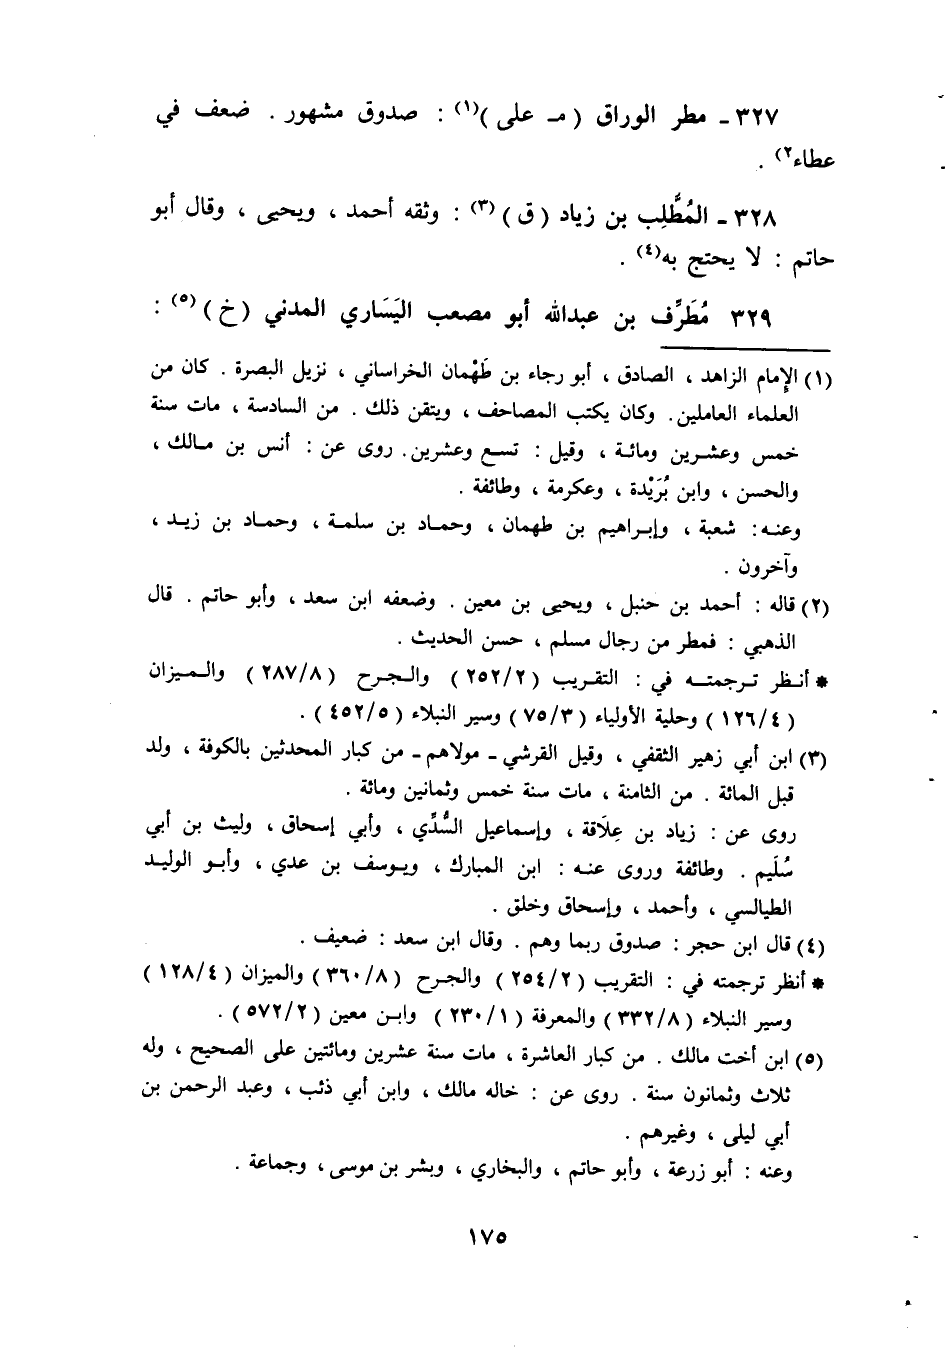 ٣٢٧ ـ مطر الوراق ( مـ على )(١) : صدوق مشهور . ضعف في
عطاء٢) .
٣٢٨ ـ المُطَّلِب بن زياد ( ق )(٣) : وثقه أحمد ، ويحيى ، وقال أبو
حاتم : لا يحتج به(٤) .
٣٢٩ مُطَرِّف بن عبدالله أبو مصعب اليَسَاري المدني ( خ )(٥) :
(١) الإمام الزاهد ، الصادق ، أبو رجاء بن طَهْمان الخراساني ، نزيل البصرة . كان من
العلماء العاملين. وكان يكتب المصاحف ، ويتقن ذلك . من السادسة ، مات سنة
خمس وعشرين ومائة ، وقيل : تسع وعشرين. روى عن : أنس بن مالك ،
والحسن ، وابن بُرَيْدة ، وعكرمة ، وطائفة .
وعنه: شعبة ، وإبراهيم بن طهمان ، وحماد بن سلمة ، وحماد بن زيد ،
وآخرون .
(٢) قاله : أحمد بن حنبل ، ويحيى بن معين . وضعفه ابن سعد ، وأبو حاتم . قال
الذهبي : فمطر من رجال مسلم ، حسن الحديث .
* أنظر ترجمته في : التقريب ( ٢٥٢/٢ ) والجرح ( ٢٨٧/٨ ) والميزان
( ١٢٦/٤ ) وحلية الأولياء ( ٧٥/٣ ) وسير النبلاء ( ٤٥٢/٥ ) .
(٣) ابن أبي زهير الثقفي ، وقيل القرشي ـ مولاهم ـ من كبار المحدثين بالكوفة ، ولد
قبل المائة . من الثامنة ، مات سنة خمس وثمانين ومائة .
روى عن : زياد بن عِلَاقة ، وإسماعيل السُّدِّي ، وأبي إسحاق ، وليث بن أبي
سُلَيم . وطائفة وروى عنه : ابن المبارك ، ويوسف بن عدي ، وأبو الوليد
الطيالسي ، وأحمد ، وإسحاق وخلق .
(٤) قال ابن حجر : صدوق ربما وهم . وقال ابن سعد : ضعيف .
* أنظر ترجمته في : التقريب ( ٢٥٤/٢ ) والجرح ( ٣٦٠/٨ ) والميزان ( ١٢٨/٤ )
وسير النبلاء ( ٣٣٢/٨ ) والمعرفة ( ٢٣٠/١ ) وابن معين ( ٥٧٢/٢ ) .
(٥) ابن أخت مالك . من كبار العاشرة ، مات سنة عشرين ومائتين على الصحيح ، وله
ثلاث وثمانون سنة . روى عن : خاله مالك ، وابن أبي ذئب ، وعبد الرحمن بن
أبي ليلى ، وغيرهم .
وعنه : أبو زرعة ، وأبو حاتم ، والبخاري ، وبشر بن موسى ، وجماعة .
١٧٥